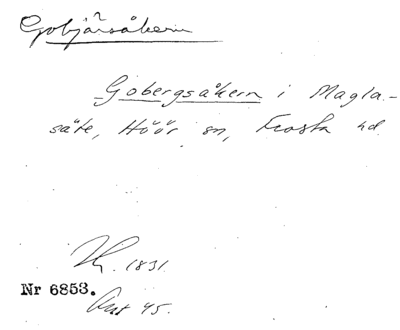 Gobjärsåkern
Gobergsåkern i Magla-
säte, Höör sn, Frosta hd.
1831.
Nr 6853.
45.